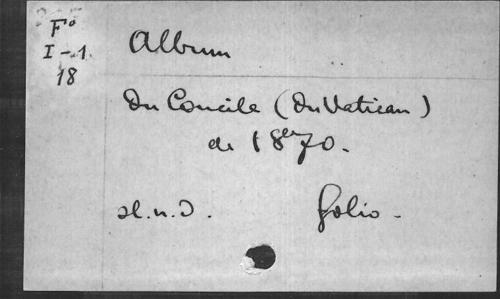 F°
I-1
18
Album
du Concile (du Vatican)
de 1870.
sl.n.d.
folio.